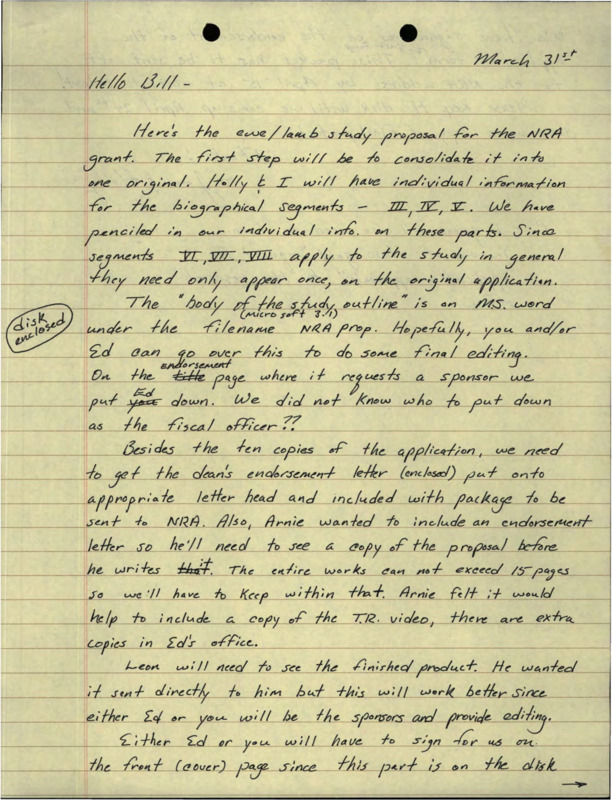 March 31st
Hello Bill -
Here's the ewe/lamb study proposal for the NRA
grant. The first step will be to consolidate it into
one original. Holly & I will have individual information
for the biographical segments - III, IV, V. We have
penciled in our individual info. on these parts. Since
segments VI, VII, VIII apply to the study in general
they need only appear once, on the original application.
The "body of the study outline" is on MS. word
(micro soft 3.1)
disk enclosed
under the filename NRA prop. Hopefully, you and/or
Ed can go over this to do some final editing.
endorsement
On the title page where it requests a sponsor we
Ed
put you down. We did not know who to put down
as the fiscal officer??
Besides the ten copies of the application, we need
to get the dean's endorsement letter (enclosed) put onto
appropriate letter head and included with package to be
sent to NRA. Also, Arnie wanted to include an endorsement
letter so he'll need to see a copy of the proposal before
he writes that it. The entire works can not exceed 15 pages
so we'll have to keep within that. Arnie felt it would
help to include a copy of the T.R. video, there are extra
copies in Ed's office.
Leon will need to see the finished product. He wanted
it sent directly to him but this will work better since
either Ed or you will be the sponsors and provide editing.
Either Ed or you will have to sign for us on
the front (cover) page since this part is on the disk
→